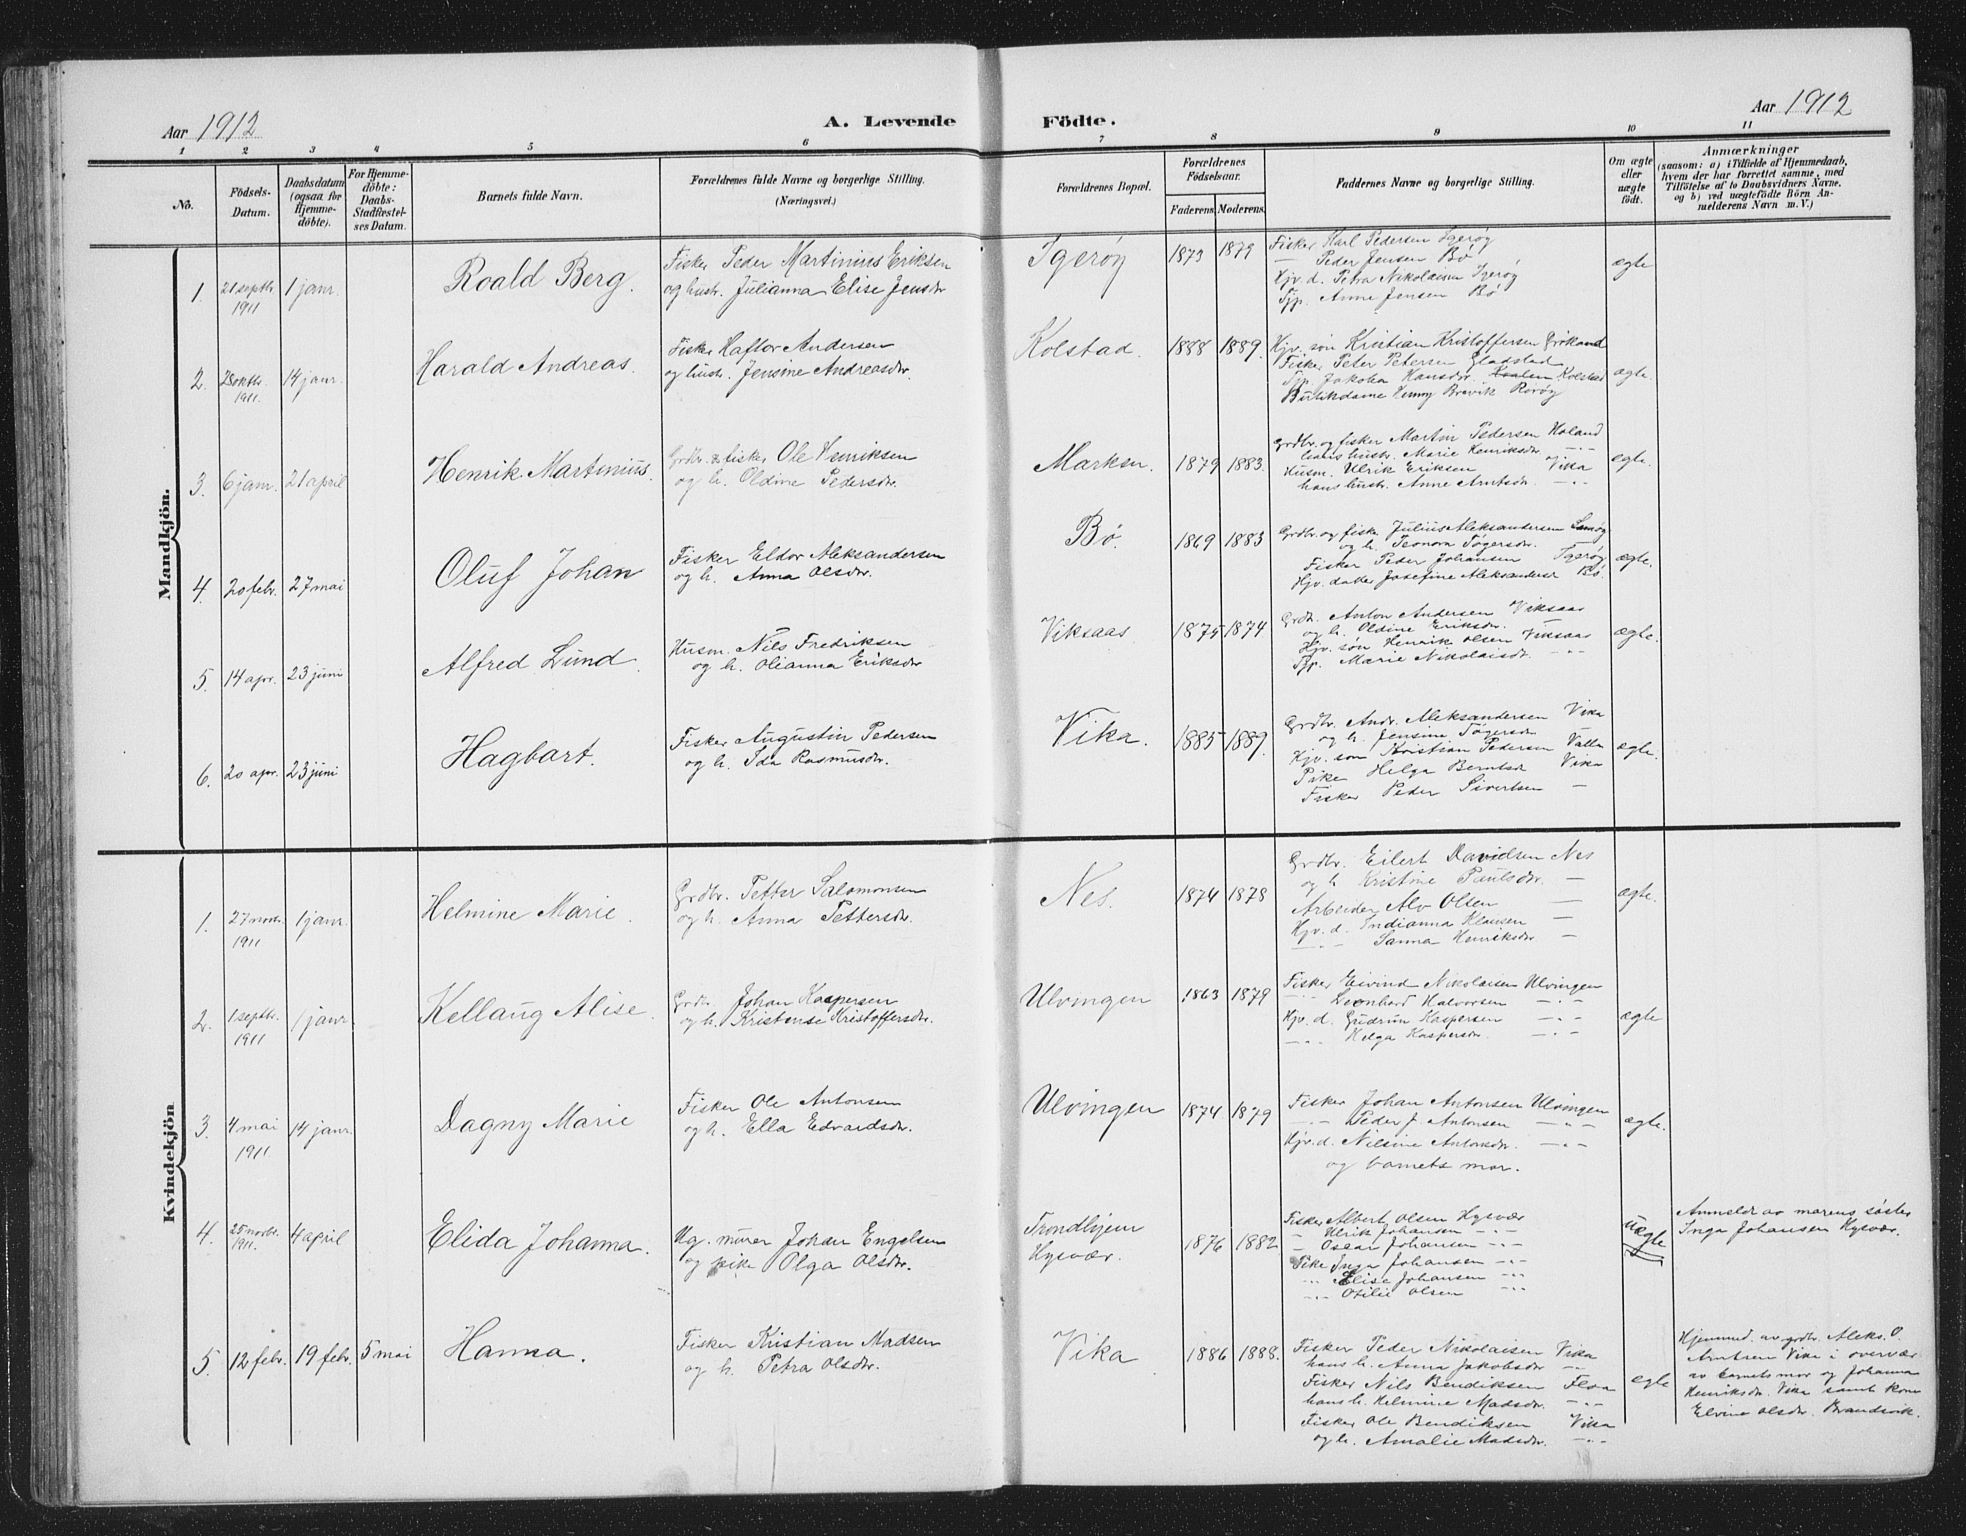 Aar 1912
A. Levende Födte.
Aar 1912
1 2 3 4 5 6 7 8 9 10 11
No.
Födsels-
Datum.
Daabsdatum
(ogsaa for
Hjemme-
döbte).
For Hjemme-
döbte:
Daabs-
Stadfæstel-
ses Datum.
Barnets fulde Navn.
Forældrenes fulde Navne og borgerlige Stilling.
(Næringsvei.)
Forældrenes Bopæl.
Forældrenes
Födselsaar.
Faderens. Moderens.
Faddernes Navne og borgerlige Stilling.
Om ægte
eller
uægte
födt.
Anmærkninger
(saasom: a) i Tilfælde af Hjemmedaab,
hvem der har forrettet samme, med
Tilföielse af to Daabsvidners Navne.
og b) ved uægtefödte Börn An-
melderens Navn m. V.)
Mandkjön.
1. 21 septbr. 1911 1 janr. Roald Berg.
Fisker Peder Martinius Eriksen
og hustr. Julianna Elise Jensdr
Igerøy 1873 1879
Fisker Karl Pedersen Igerøy
— Peder Jensen Bø
Hjv. d. Petra Nikolaisen Igerøy
Tjp. Anne Jensen Bø
ægte
2. 28 oktbr. 1911. 14 janr. Harald Andreas.
Fisker Haftor Andersen
og hustr. Jensine Andreasdr.
Kolstad. 1888 1889.
Hjv. søn Kristian Kristoffersen
Fisker Peter Petersen Gladstad
Tjp. Jakoba Hansdr. Kolstad
Butikdame Henny Brevik Rørøy
ægte.
3. 6 janr. 21 april Henrik Martinius.
Grdbr. & fisker Ole Henriksen
og h. Oldine Pedersdr.
Marken. 1879 1883.
Grdbr. og fisker Martin Pedersen Holand
hans hustr. Marie Henriksdr. —
Husm. Ulrik Eriksen Vika
hans hustr. Anne Arntsdr. — " —
ægte.
4. 20 febr. 27 mai Oluf Johan
Fisker Eldor Aleksandersen
og h. Anna Olsdr.
Bø. 1869 1883
Grdbr. og fisker Julius Aleksandersen
og h. Leonora Tøgersdr.
Fisker Peder Johansen Igerøy
Hjv. datter Josefine Aleksandersen Bø.
ægte.
5. 14 apr. 23 juni Alfred Lund
Husm. Nils Fredriksen
og h. Olianna Eriksdr.
Viksaas 1875 1874
Grdb. Anton Andersen Viksaas
og h. Oldine Eriksdr. —
Hjv. søn Henrik Olsen Viksaas
Tjp. Marie Nikolaisdr. — " —
ægte.
6. 20 apr. 23 juni Hagbart.
Fisker Augustin Pedersen
og h. Ida Rasmusdr.
Vika. 1885 1889.
Grdbr. Andr. Aleksandersen Vika
og h. Jensine Tøgersdr —
Hjv. søn Kristian Pedersen Valla
Pike Helga Berntsdr Vika
Fisker Peder Sivertsen —
ægte.
Kvindekjön
1. 27 novbr. 1911 1 janr. Helmine Marie.
Grdbr. Petter Salomonsen
og h. Anna Pettersdr.
Nes. 1874 1878
Grdbr. Eilert Davidsen Nes
og h. Kristine Paulsdr. —
Arbeider Alv Olsen —
Hjv. d. Indianna Klausen —
— " — Sanna Henriksdr. —
ægte.
2. 1 septbr. 1911 1 janr. Kellaug Alise.
Grdb. Johan Kaspersen
og h. Kristense Kristoffersdr.
Ulvingen 1863 1879
Fisker Eivind Nikolaisen Ulvingen
— " — Leonhard Halvorsen — " —
Hjv. d. Gudrun Kaspersen — " —
— " — Helga Kaspersdr. — " —
ægte
3. 4 mai 1911 14 janr. Dagny Marie
Fisker Ole Antonsen
og h. Ella Edvardsdr.
Ulvingen 1874 1879
Fisker Johan Antonsen Ulvingen
— " — Peder J. Antonsen — " —
Hjv. d. Nilsine Antonsdr — " —
og barnets mor.
ægte.
4. 25 novbr. 1911. 4 april Elida Johanna.
Ug. murer Johan Engelsen
og pike Olga Olsdr.
Trondhjem
Hysvær. 1876 1882
Fisker Albert Olsen Hysvær
" Ulrik Johansen — " —
" Oscar Johansen — " —
Pike Inga Johansen — " —
— " — Elise Johansen — " —
— " — Otilie Olsen — " —
uægte
Anmeldt av morens søster
Inga Johansen Hysvær.
5. 12 febr. 19 febr. 5 mai Hanna.
Fisker Kristian Madsen
og h. Petra Olsdr.
Vika 1886 1888.
Fisker Peder Nikolaisen Vika
hans h. Anna Jakobsdr — " —
Fisker Nils Bendiksen Floa
hans h. Helmine Madsdr. — " —
Fisker Ole Bendiksen Vika
og h. Amalie Madsdr. — " —
ægte
Hjemmed. av grdbr. Aleks. O.
Arntsen Vika i overvær
av barnets mor og Johanna
Henriksdr. Vika samt kone
Elvine Olsdr. Brandsvik.